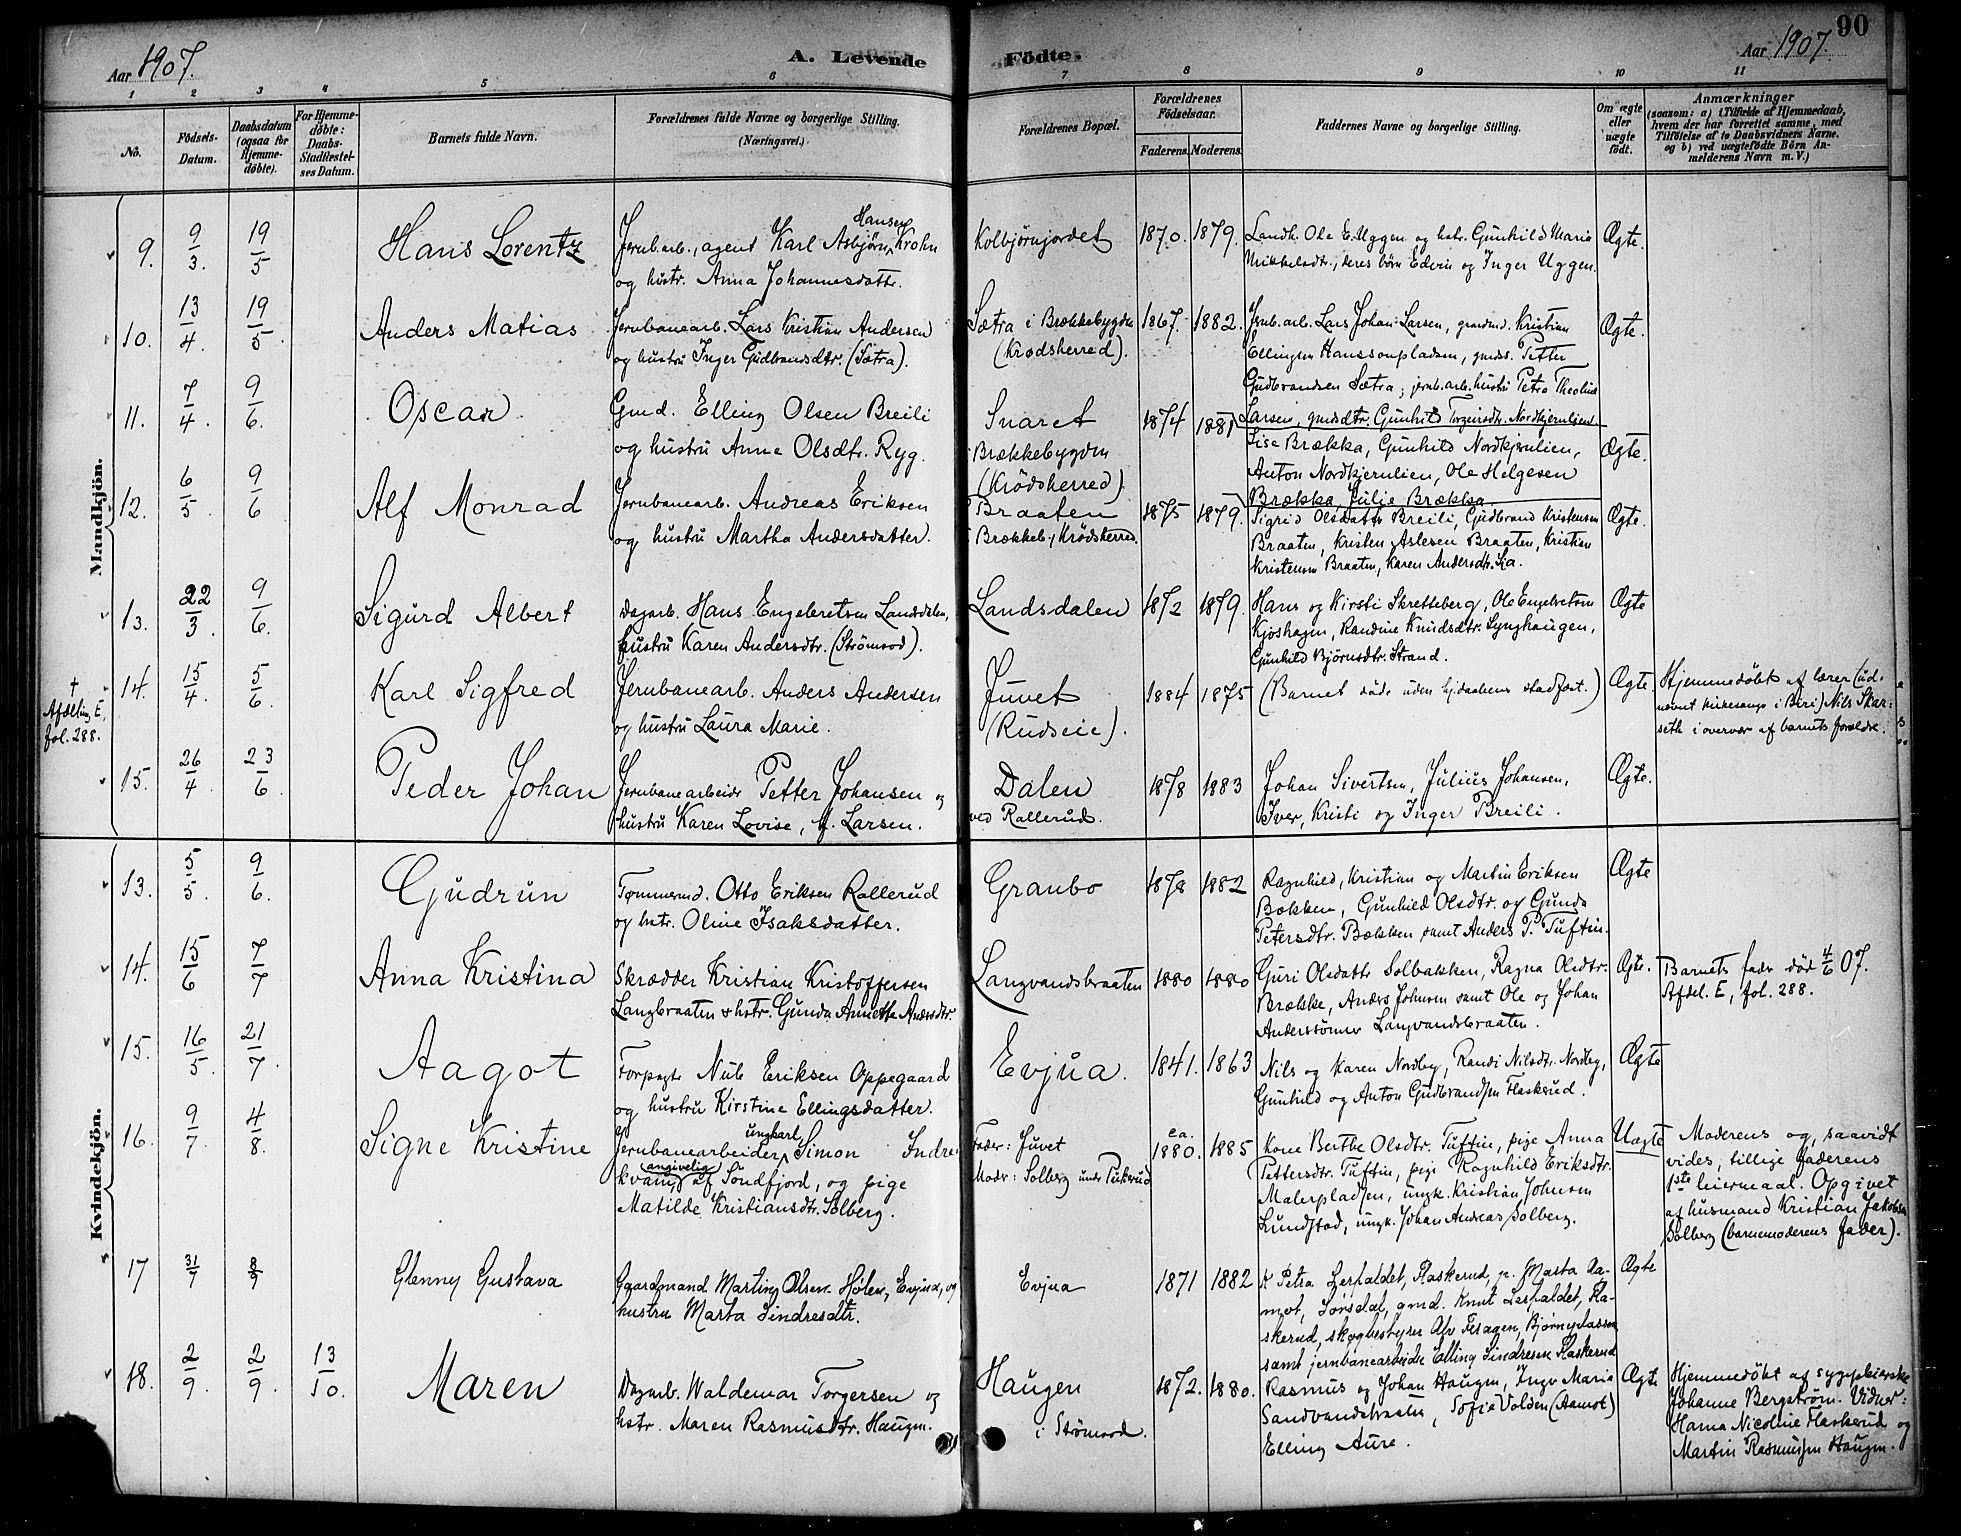 90
Aar 1907.
A. Levende
Födte.
Aar 1907.
1 2 3 4 5 6 7 8 9 10 11
No.
Födsels-
Datum.
Daabsdatum
(ogsaa for
Hjemme-
döbte).
For Hjemme-
döbte:
Daabs-
Stadfæstel-
ses Datum.
Barnets fulde Navn.
Forældrenes fulde Navne og borgerlige Stilling.
(Næringsvei.)
Forældrenes Bopæl.
Forældrenes
Födselsaar.
Faderens. Moderens.
Faddernes Navne og borgerlige Stilling.
Om ægte
eller
uægte
födt.
Anmærkninger
(saasom: a) i Tilfælde af Hjemmedaab,
hvem der har forrettet samme, med
Tilföielse af to Daabsvidners Navne.
og b) ved uægtefödte Börn An-
melderens Navn m. V.)
Mandkjön.
9. 9/3. 19/5 Hans Lorentz
Hansen
Jernb.arb., agent Karl Asbjörn Krohn
og hustr. Anna Johannesdatte.
Kolbjörnjordet 1870. 1879.
Landh. Ole E. Uggen og hstr. Gunhild Marie
Mikkelsdtr., deres börn Edvin og Inger Uggen.
Ægte.
10. 13/4. 19/5. Anders Matias
Jernbanearb. Lars Kristian Andersen
og hustru Inger Gudbrandsdtr. (Sætra).
Sætra i Brækkebygden
(Krödsherred).
1867. 1882.
Jernb.arb. Lars Johan Larsen, grdmd. Kristian
Ellingsen Hanssonpladsen, gmds. Petter
Gudbrandsen Sætra; jernb.arb. hustru Petra
Larsen, gmdsdtr. Gunhild Torgeirsdtr. Nordkjernlien
Ægte.
11. 7/4. 9/6. Oscar
Gmd. Elling Olsen Breili
og hustru Anne Olsdtr. Ryg.
Snaret
Brækkebygden
(Krödsherred)
1874 1881
Lise Brækka, Gunhild Nordkjernlien,
Anton Nordkjernlien, Ole Helgesen
Brækka, Julie Brækka
Ægte.
12. 6/5. 9/6 Alf Monrad
Jernbanearb. Andreas Eriksen
og hustru Martha Andersdatter.
Braaten
Brækkeb., Krödsherred.
1875 1879.
Sigrid Olsdatter Breili, Gudbrand Kristensen
Braaten, Kristen Aslesen Braaten, Kristian
Kristensen Braaten, Karen Andersdtr. Lia.
Ægte.
13. 22/3. 9/6. Sigurd Albert
Dagarb. Hans Engebretsen Landsdalen,
hustru Karen Andersdtr. (Strömsod).
Landsdalen 1872 1879.
Hans og Kirsti Skretteberg, Ole Engebretsen
Kjöshagen, Randine Knudsdtr. Lynghaugen,
Gunhild Björnsdtr. Strand.
Ægte
† Afdeling E, fol. 288.
14. 15/4. 5/6. Karl Sigfred
Jernbanearb. Anders Andersen
og hustru Laura Marie.
Juvet
(Rudseie).
1884 1875
(Barnet döde uden hj.daabens stadfæst.)
Ægte.
Hjemmedöbt af lærer (ud-
nævnt kirkesanger i Biri) Nils Skar-
seth i overvær af barnets forældre.
15. 26/4. 23/6. Peder Johan
Jernbanearbeider Petter Johansen og
hustru Karen Lovise, f. Larsen.
Dalen
ved Rallerud.
1878 1883
Johan Sivertsen, Julius Johansen,
Iver, Kristi og Inger Breili.
Ægte.
Kvindekjön.
13. 5/5. 9/6. Gudrun
Tømmermd. Otto Eriksen Rallerud
og hstr. Oline Isaksdatter.
Granbo 1878 1882
Ragnhild, Kristian og Martin Eriksen
Bækken, Gunhild Olsdtr. og Gunda
Petersdtr. Bækken samt Anders P. Tuftin.
Ægte
14. 15/6 7/7 Anna Kristina
Skrædder Kristian Kristoffersen
Langbraaten & hstr. Gunda Annette Andersdtr.
Langvandsbraaten 1880 1880
Guri Olsdatter Solbakken, Ragna Olsdtr.
Brække, Anders Johnsen samt Ole og Johan
Anderssönner Langvandsbraaten.
Ægte.
Barnets fader död 4/6 07.
Afdel. E, fol. 288.
15. 16/5. 21/7. Aagot
Forpagter Nub Eriksen Oppegaard
og hustru Kirstine Ellingsdatter.
Evjua. 1841. 1863
Nils og Karen Nordby, Randi Nilsdtr. Nordby,
Gunhild og Anton Gudbrandsen Flaskerud.
Ægte
16. 9/7. 4/8. Signe Kristine
ungkarl
Jernbanearbeider Simon Indre-
angivelig
kvamg af Söndfjord, og pige
Matilde Kristiansdtr. Solberg.
Fader: Juvet
Moder: Solberg under Pukerud
ca.
1880. 1885
Kone Berthe Olsdtr. Tuftin, pige Anna
Pettersdtr. Tuftin, pige Ragnhild Eriksdtr.
Malerpladsen, ungk. Kristian Johnsen
Lundstad, ungk. Johan Andreas Solberg.
Uægte
Moderens og, saavidt
vides, tillige faderens
1ste leiermaal. Opgivet
af husmand Kristian Jakobsen
Solberg (barnemoderens fader).
17 31/7 8/9 Glenny Gustava
Gaardmand Martin Olsen Hølen, Evjua, og
hustru Marta Sindresdtr.
Evjua 1871 1882
K. Petra Lerfaldet, Flaskerud, p. Marta Ra-
mot, Sorsdal, gmd. Knut Lerfaldet, Fla-
skerud, skogbestyrer Alv
samt jernbanearbeider Elling Sindresen Flaskerud
Ægte
18. 2/9. 2/9. 13/10. Maren
Dagarb. Waldemar Torgersen og
hstr. Maren Rasmusdtr. Haugen.
Haugen
i Strömsod.
1872. 1880.
Rasmus og Johan Haugen, Inger Maria
Sandvandsbraaten, Sofie Volden (Aamot)
Elling Aure.
Ægte
Hjemmedöbt af sygepleierske
Johanne Bergström. Vidner:
Hanna Nicoline Flaskerud og
Martin Rasmussen Haugen.